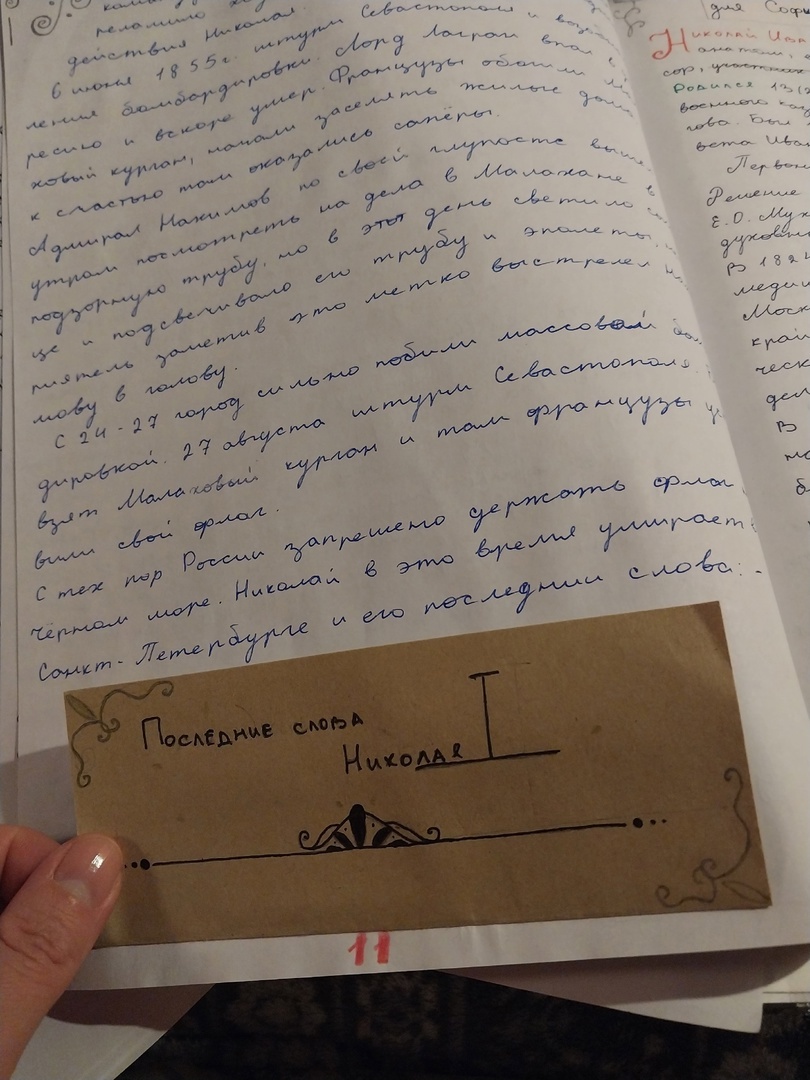 действия Николая.
6 июня 1855г. штурм Севастополя и
ления бомбардировки. Лорд Лаглан впал в
ресию и вскоре умер. Французы обошли
ховый курган, начали заселять жилые дома
к счастью там оказались сапёры.
Адмирал Нахимов по своей глупости
утрам посмотреть на дела в Малахане в
подзорную трубу, но в этот день светило
це и подсвечивало его трубу и эполеты,
риятель заметив это метко выстрелел
мову в голову.
С 24-27 город сильно побили массовой
дировкой. 27 августа штурм Севастополя.
взят Малаховый курган и там французы
вили свой флаг.
С тех пор России запрешено держать флаг
чёрном море. Николай в это время умирает
Санкт-Петербурге и его последнии слова:
Последние слова
Николая I
11
для Софи
Николай
анатом,
сор, участник
Родился 13(2
военного каз
гова. Был
вета Иван
Первон
Решение
Е.О. Мух
духовны
В 1824
медиц
Моск
край
ческ
дел
В